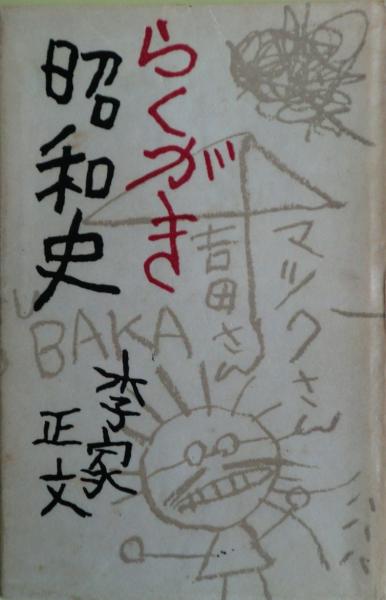 らくがき
昭和史
マックさん
吉田さん
BAKA
李家
正文